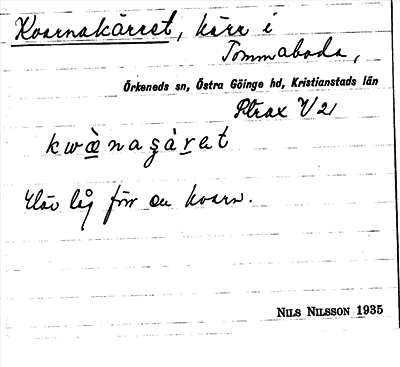 Kvarnakärret, kärr i
Tommaboda,
Örkeneds sn, Östra Göinge hd, Kristianstads län
Strax V 21
kwæ̀nagàrat
Här låg förr en kvarn.
NILS NILSSON 1935